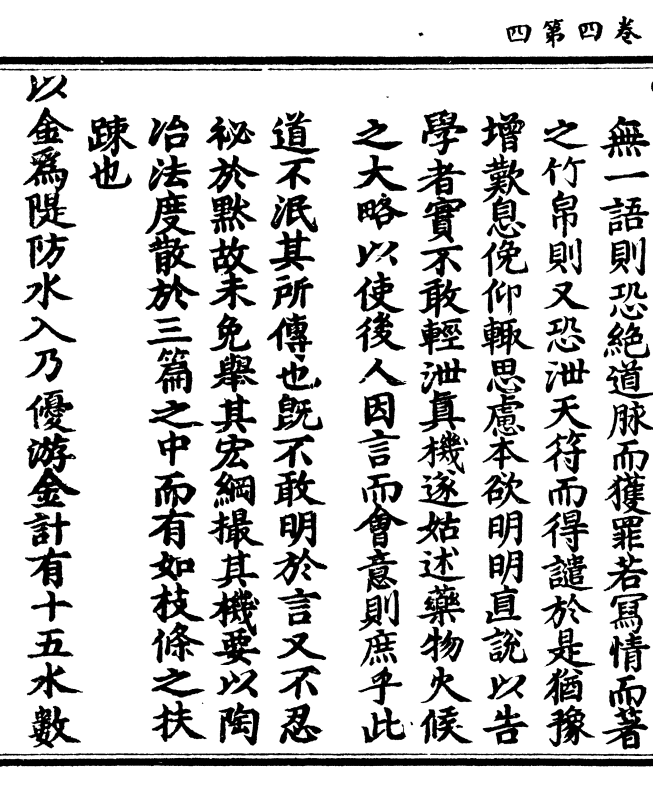 卷四第四
無一語則恐絶道脉而獲罪若冩情而著
之竹帛則又恐泄天符而得譴於是猶豫
增歎息俛仰輙思慮本欲明明直説以告
學者實不敢輕泄真機遂姑述藥物火候
之大略以使後人因言而會意則庶乎此
道不泯其所傳也既不敢明於言又不忍
祕於默故未免舉其宏綱撮其機要以陶
冶法度散於三篇之中而有如枝條之扶
踈也
以金爲隄防水入乃優游金計有十五水數